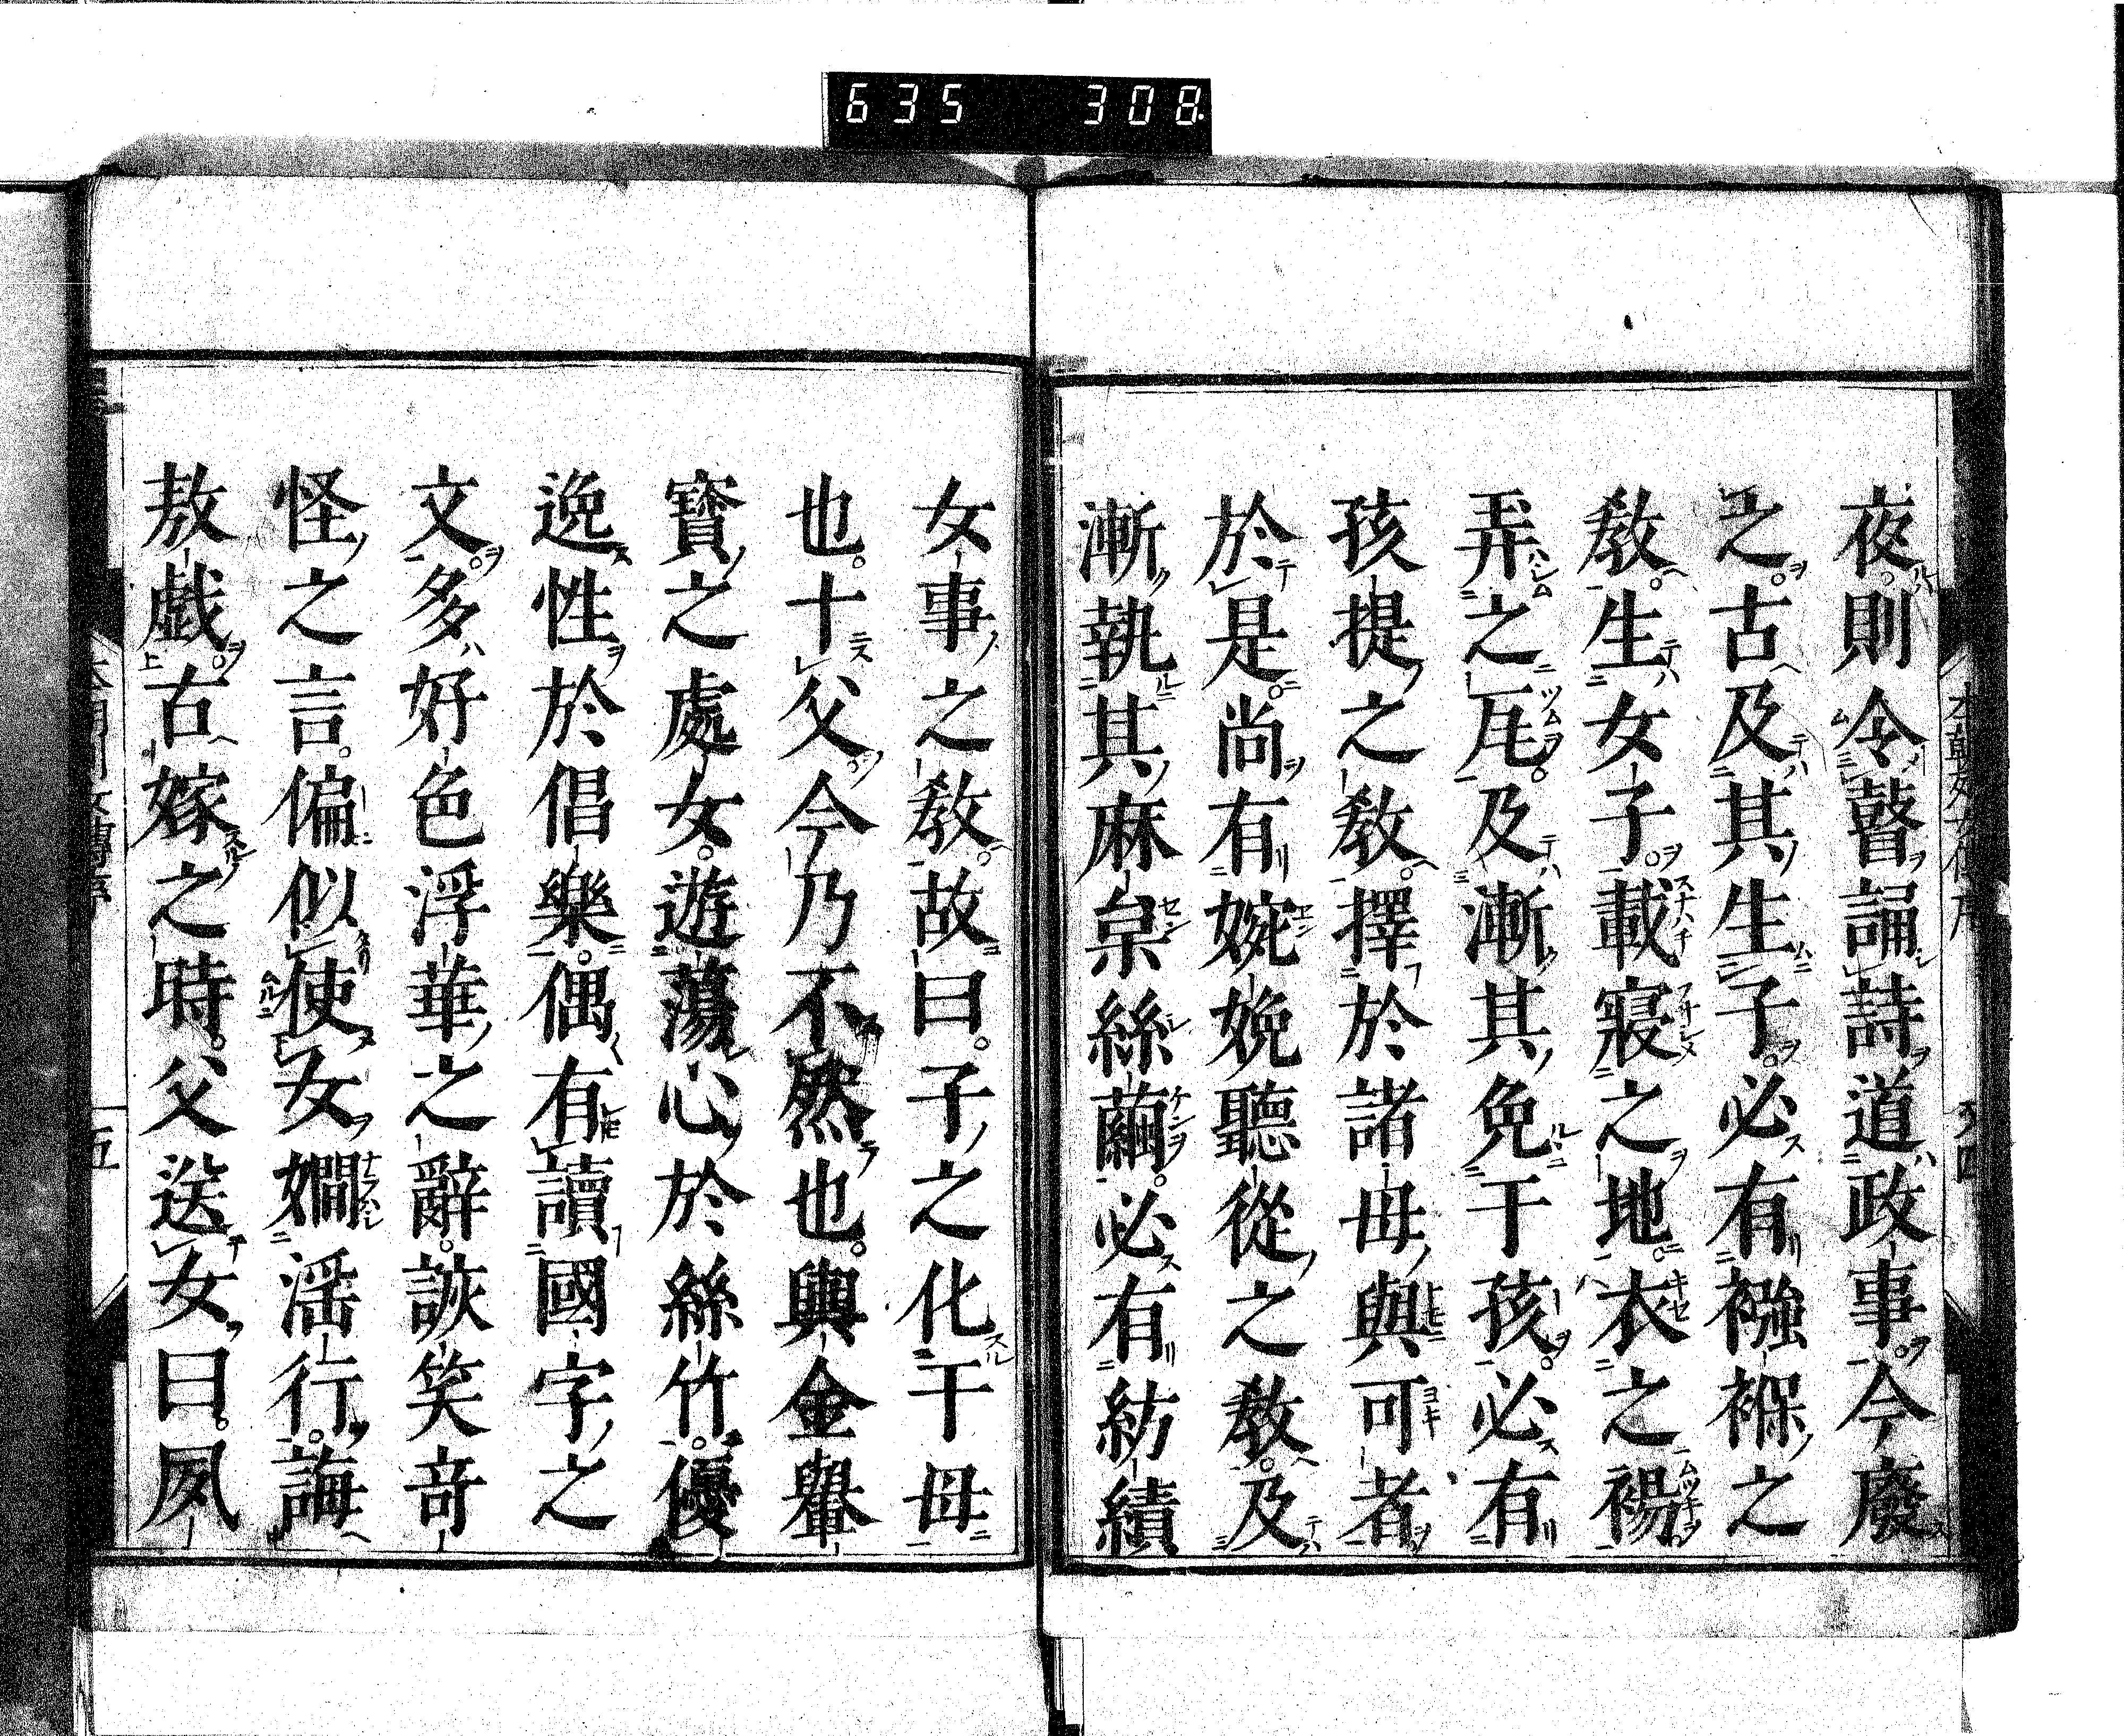 635 308
夜則令瞽誦詩道政事今廢
之古及其生子必有襁褓之
教生女子載寢之地衣之裼
弄之瓦及漸其免于孩必有
孩提之教擇於諸母與可者
於是尚有婉娩聽從之教及
漸執其麻枲絲繭必有紡績
女事之教故曰子之化于母
也十父今乃不然也與金轝
寶之處女遊蕩心於絲竹優
逸性於倡樂偶有讀國字之
文多好色浮華之辭詼笑奇
怪之言偏似使女嫺淫行誨
敖戯古嫁之時父送女曰夙